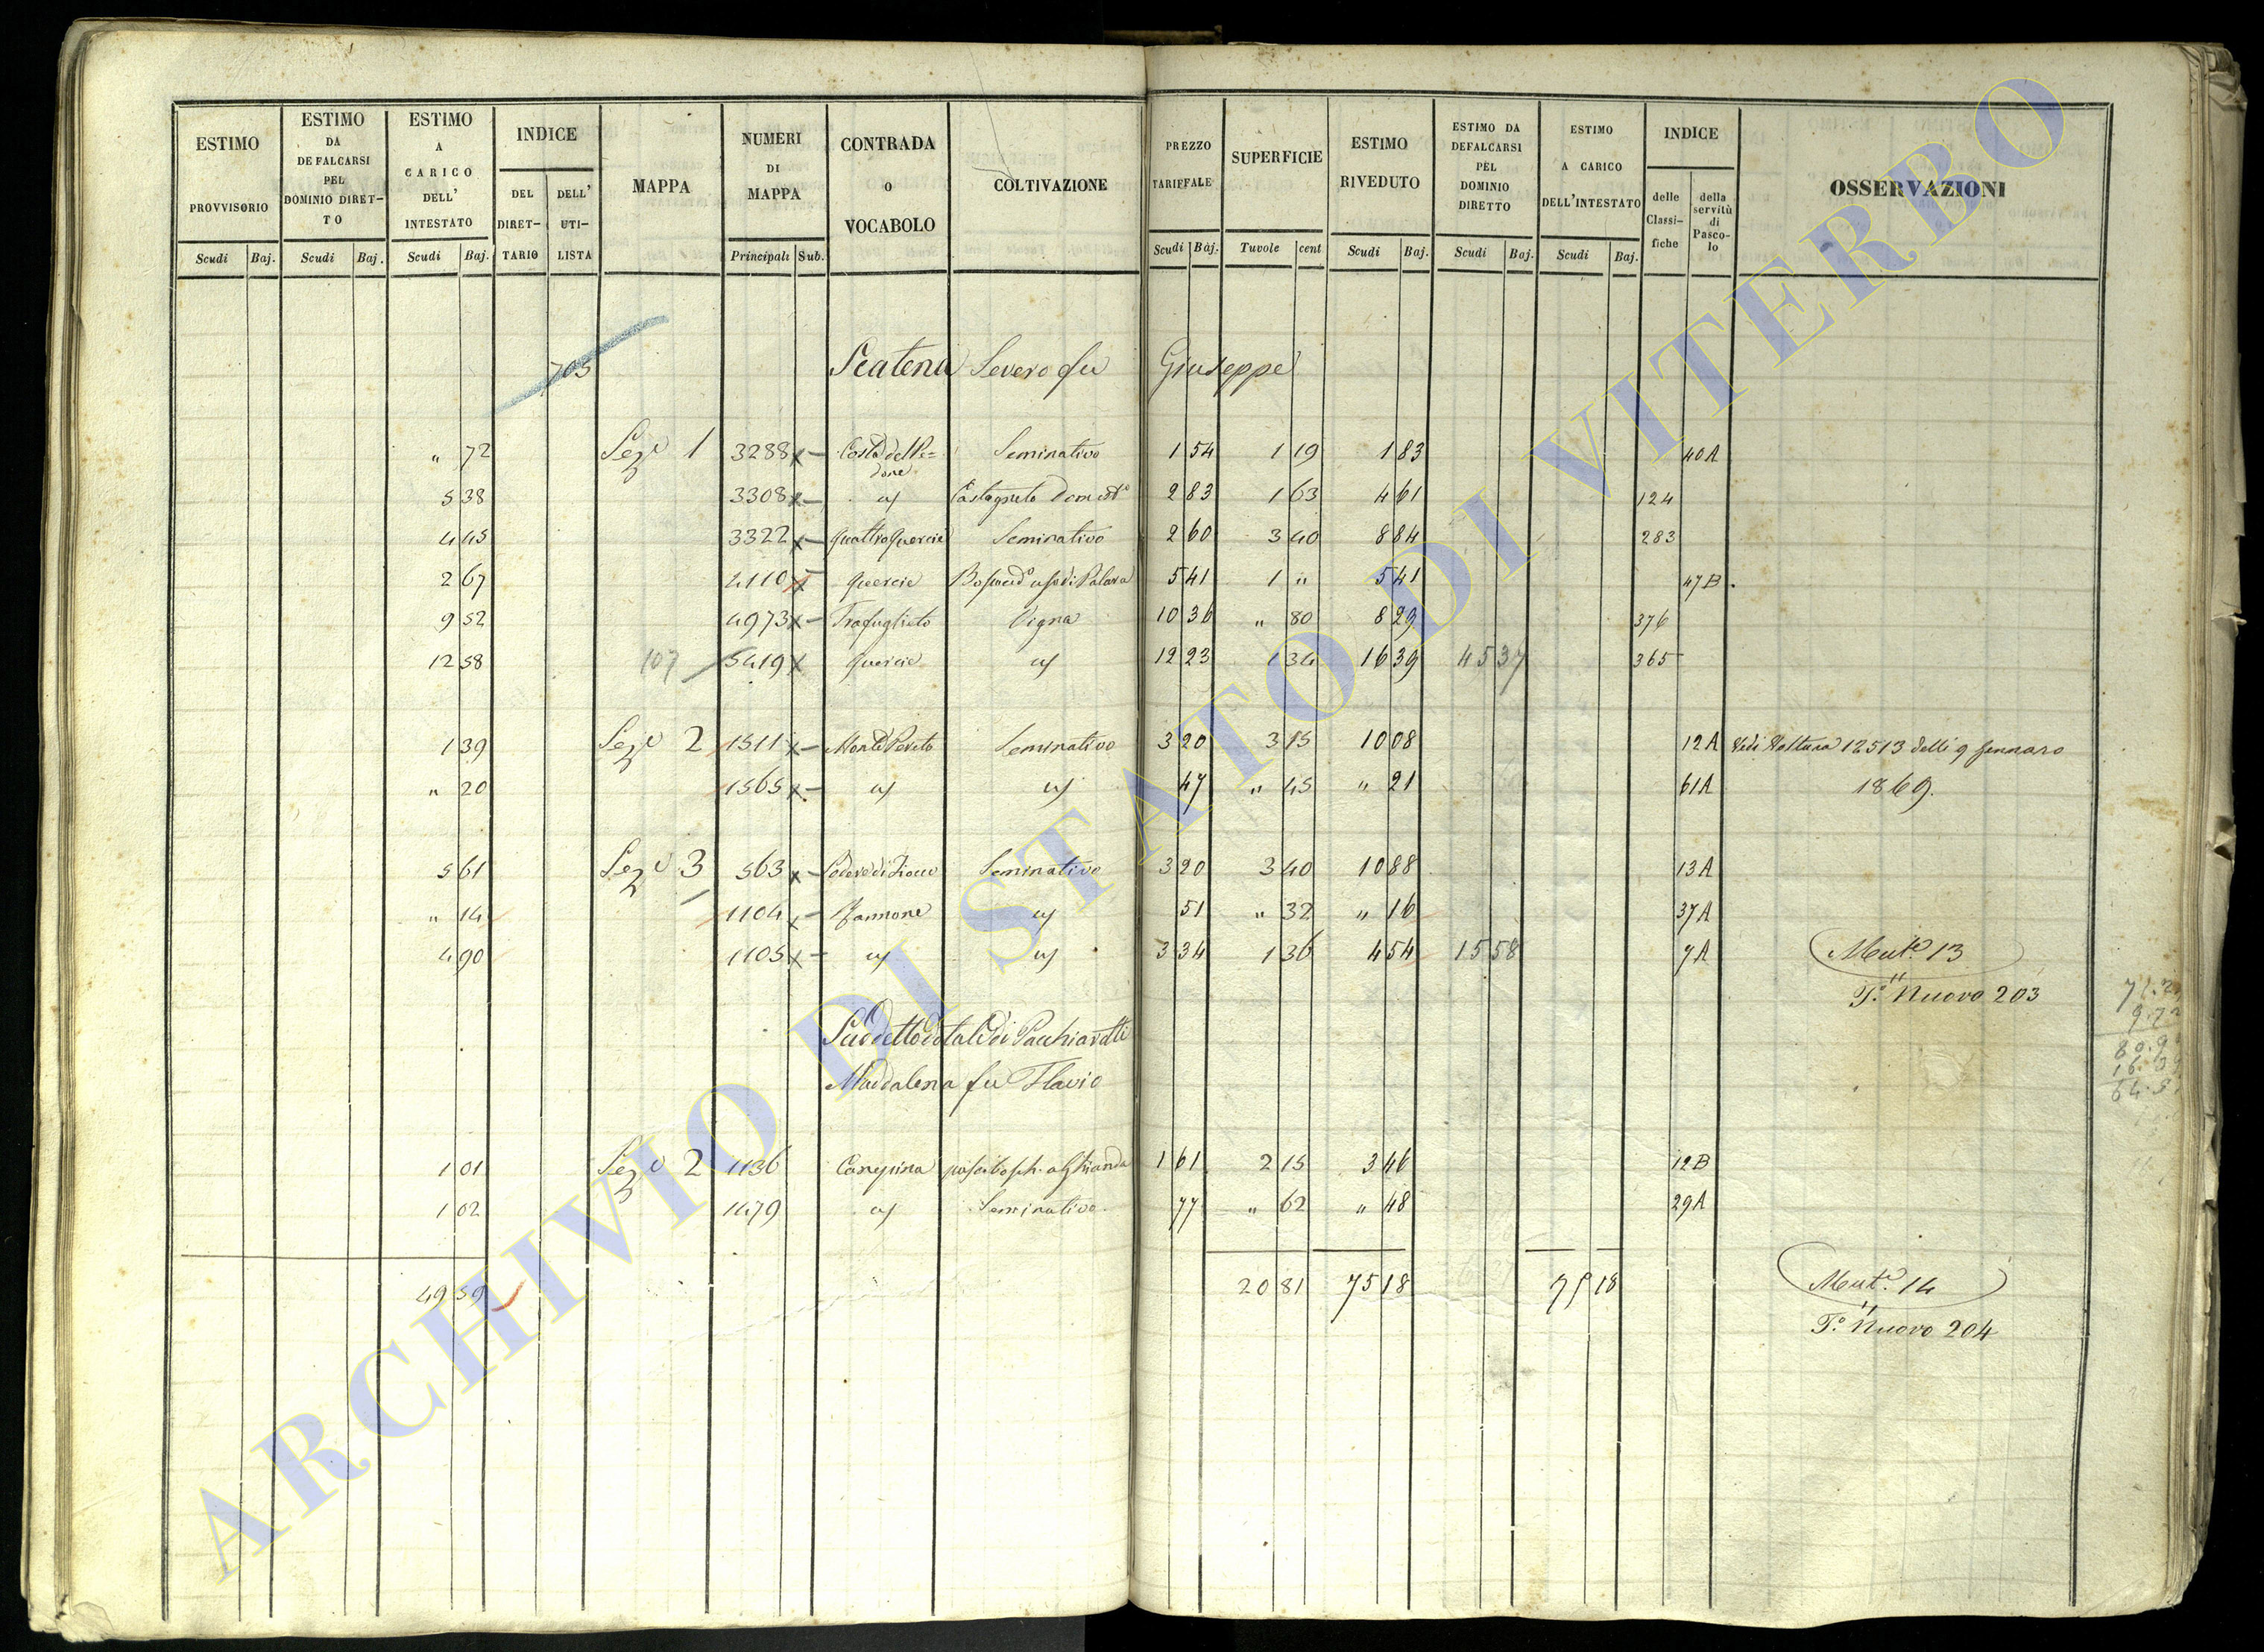 ESTIMO PROVVISORIO | ESTIMO DA DEFALCARSI PEL DOMINIO DIRETTO | ESTIMO A CARICO DELL' INTESTATO | INDICE | MAPPA | NUMERI DI MAPPA | CONTRADA O VOCABOLO | COLTIVAZIONE | PREZZO TARIFFALE | SUPERFICIE | ESTIMO RIVEDUTO | ESTIMO DA DEFALCARSI PEL DOMINIO DIRETTO | ESTIMO A CARICO DELL'INTESTATO | INDICE | OSSERVAZIONI
DEL DIRETTARIO | DELL' UTILISTA | delle Classifiche | della servitù di Pascolo
Scudi | Baj. | Scudi | Baj. | Scudi | Baj. | Principali | Sub. | Scudi | Baj. | Tavole | cent | Scudi | Baj. | Scudi | Baj. | Scudi | Baj.
703 Scatena Severo fu Giuseppe
" 72 Sez.e 1 3288 x – Costa del Pe=done Seminativo 1 54 1 19 1 83 40A
5 38 3308 x – " Castagneto Domest.o 2 83 1 63 4 61 124
4 45 3322 x – Quattro Quercie Seminativo 2 60 3 40 8 84 283
2 67 4110 x Quercie 5 41 1 " 5 41 47B
9 52 4973 x – Trafuglieto Vigna 10 36 " 80 8 29 376
12 58 107 5419 x Quercie " 12 23 1 34 16 39 45 37 365
1 39 Sez.e 2 1511 x – Monte Seminativo 3 20 3 15 10 08 12A Vedi Voltura 12513 delli 9 Gennaro
" 20 1565 x – " " 47 " 45 " 21 61A 1869.
5 61 Sez.e 3 563 x – Seminativo 3 20 3 40 10 88 13A
" 14 1104 x – " 51 " 32 " 16 37A
4 90 1105 x – " " 3 34 1 36 4 54 15 58 7A Mut.e 13
T.o Nuovo 203
71.2
9.72
80.9
16.39
64.5
Suddetto dotali di Pacchiarotti
Maddalena fu Flavio
1 01 Sez.e 2 1136 Canepina a Ghianda 1 61 2 15 3 46 12B
1 02 1479 " Seminativo 77 " 62 " 48 29A
49 59 20 81 75 18 75 18 Mut.e 14
T.o Nuovo 204
ARCHIVIO DI STATO DI VITERBO